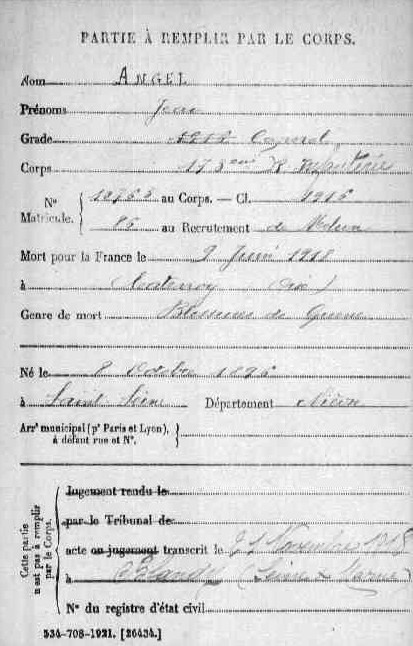 PARTIE À REMPLIR PAR LE CORPS.
Nom ANGEL
Prénoms Jean
Grade Caporal
Corps 178ème R Infanterie
N° Matricule. 10768 au Corps. — Cl. 1916
86 au Recrutement de Melun
Mort pour la France le 9 Juin 1918
à Catenoy Oise
Genre de mort Blessures de Guerre
Né le 8 Octobre 1896
à Saint Seine Département Nièvre
Arrt municipal (pr Paris et Lyon), à défaut rue et N°.
Cette partie n'est pas à remplir par le Corps.
Jugement rendu le
par le Tribunal de
acte ou jugement transcrit le 21 Novembre
à (Seine & Marne)
N° du registre d'état civil
534-708-1921. [26434.]